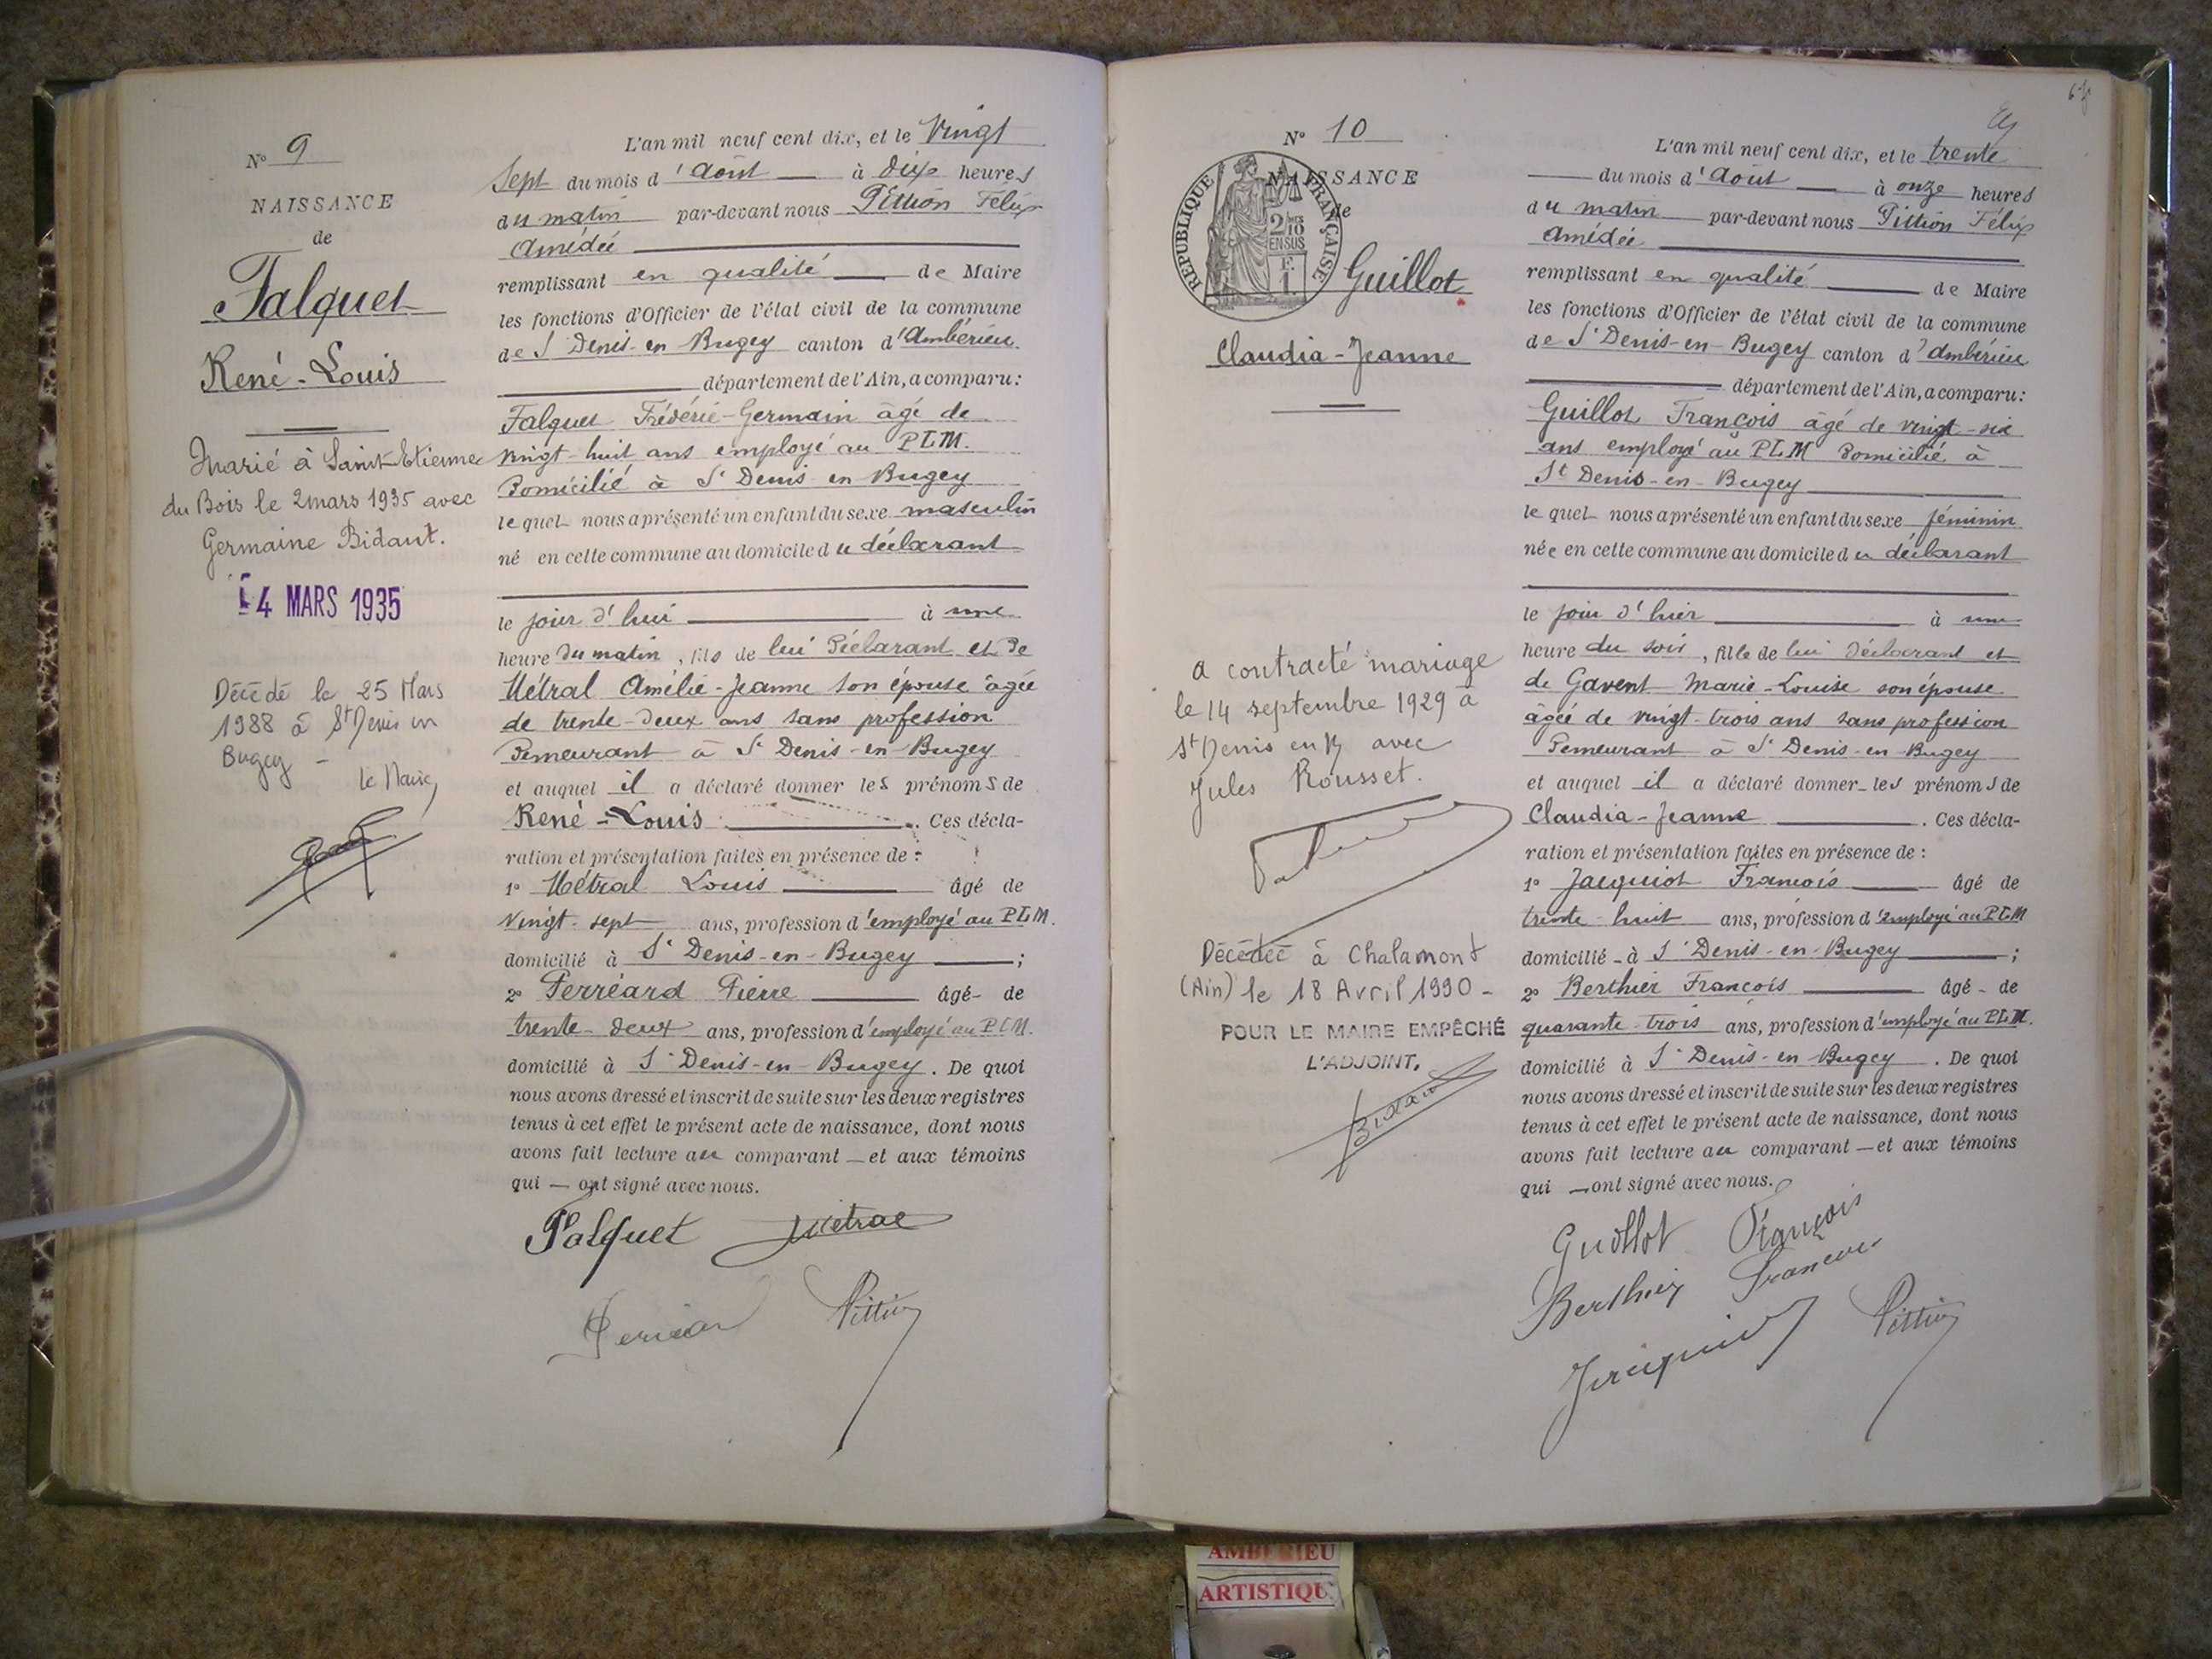 N° 9
NAISSANCE
de
Falquet
René-Louis
Marié à Saint-Etienne
du Bois le 2 mars 1935 avec
Germaine Bidaut.
4 MARS 1935
Décédé le 25 Mars
1988 à St Denis en
Bugey -
le Maire,
L'an mil neuf cent dix, et le Vingt
Sept du mois d'Août à dix heures
du matin par-devant nous Pittion Félix
Amédée
remplissant en qualité de Maire
les fonctions d'Officier de l'état civil de la commune
de St Denis-en Bugey canton d'Ambérieu
département de l'Ain, a comparu:
Falquet Frédéric-Germain âgé de
vingt-huit ans employé au PLM.
Domicilié à St Denis en Bugey
lequel nous a présenté un enfant du sexe masculin
né en cette commune au domicile du déclarant
le jour d'hui à une
heure du matin, fils de lui Déclarant et De
Métral Amélie-Jeanne son épouse âgée
de trente-deux ans sans profession
Demeurant à St Denis-en-Bugey
et auquel il a déclaré donner les prénoms de
René-Louis. Ces décla-
ration et présentation faites en présence de:
1° Métral Louis âgé de
Vingt-sept ans, profession d'employé au PLM.
domicilié à St Denis-en-Bugey;
2° Perréard Pierre âgé de
trente-deux ans, profession d'employé au PLM.
domicilié à St Denis-en-Bugey. De quoi
nous avons dressé et inscrit de suite sur les deux registres
tenus à cet effet le présent acte de naissance, dont nous
avons fait lecture au comparant et aux témoins
qui ont signé avec nous.
Falquet Métral
Perréard Pittion
N° 10
NAISSANCE
de
RÉPUBLIQUE FRANÇAISE
2/10
EN SUS
F.
1.
Guillot
Claudia-Jeanne
a contracté mariage
le 14 septembre 1929 à
St Denis en B avec
Jules Rousset.
Décédée à Chalamont
(Ain) le 18 Avril 1990 -
POUR LE MAIRE EMPÊCHÉ
L'ADJOINT.
L'an mil neuf cent dix, et le trente
du mois d'Août à onze heures
du matin par-devant nous Pittion Félix
Amédée
remplissant en qualité de Maire
les fonctions d'Officier de l'état civil de la commune
de St Denis-en-Bugey canton d'Ambérieu
département de l'Ain, a comparu:
Guillot François âgé de vingt-six
ans employé au PLM Domicilié à
St Denis-en-Bugey
lequel nous a présenté un enfant du sexe féminin
née en cette commune au domicile du déclarant
le jour d'hier à une
heure du soir, fille de lui déclarant et
de Gavent Marie-Louise son épouse
âgée de vingt-trois ans sans profession
Demeurant à St Denis-en-Bugey
et auquel il a déclaré donner les prénoms de
Claudia-Jeanne. Ces décla-
ration et présentation faites en présence de:
1° Jacquiot François âgé de
trente-huit ans, profession d'employé au PLM
domicilié à St Denis-en-Bugey;
2° Berthier François âgé de
quarante-trois ans, profession d'employé au PLM.
domicilié à St Denis-en-Bugey. De quoi
nous avons dressé et inscrit de suite sur les deux registres
tenus à cet effet le présent acte de naissance, dont nous
avons fait lecture au comparant et aux témoins
qui ont signé avec nous.
Guillot François
Berthier Francois
Jacquiot Pittion
AMBERIEU
ARTISTIQU